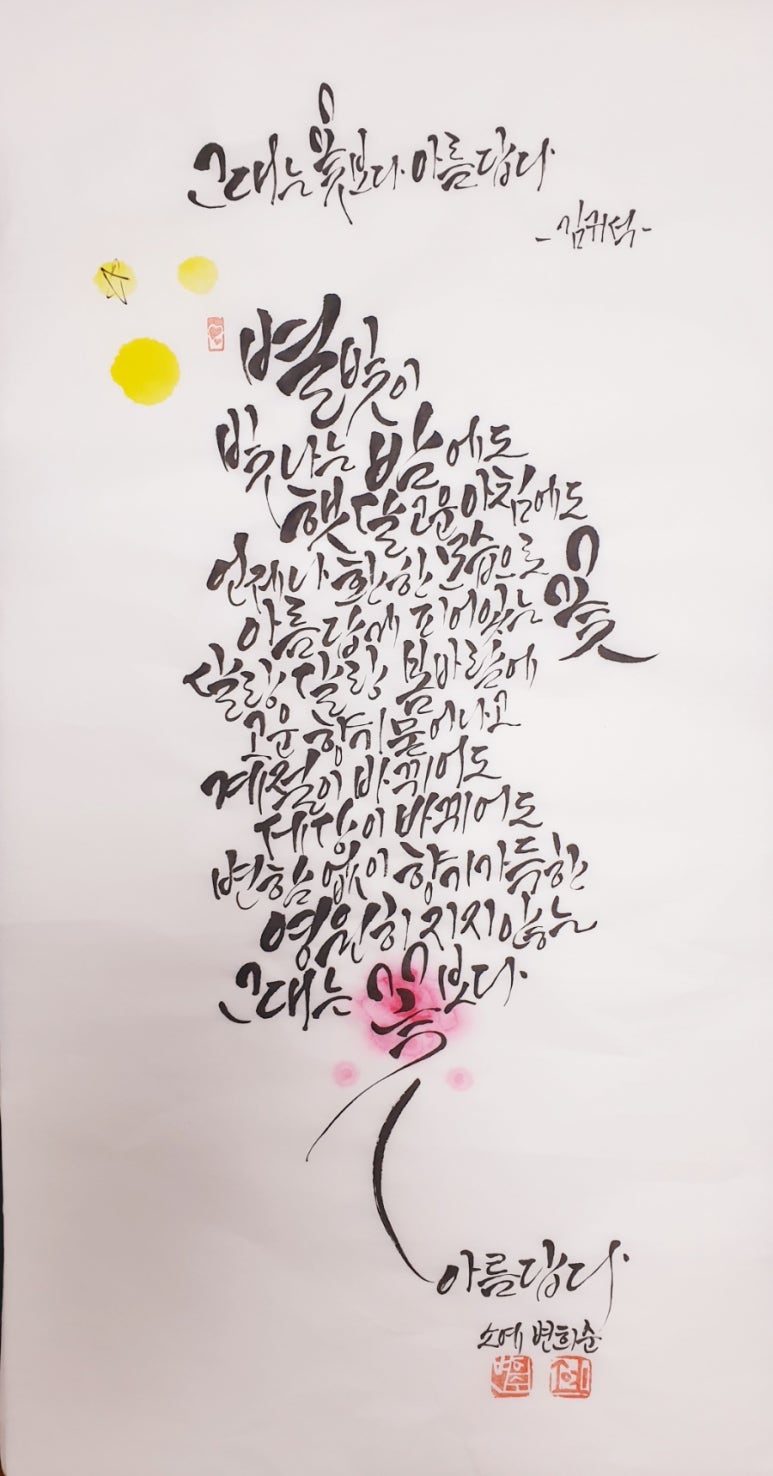 그대는 꽃보다 아름답다
-김귀석-
별빛이
빛나는 밤에도
햇달 고운 아침에도
언제나 환한 모습으로
아름답게 피어있는 꽃
살랑살랑 봄바람에
고운 향기 묻어나고
계절이 바뀌어도
세상이 바뀌어도
변함없이 향기 가득한
영원히 지지 않는
그대는 꽃보다
아름답다
소예 변희순